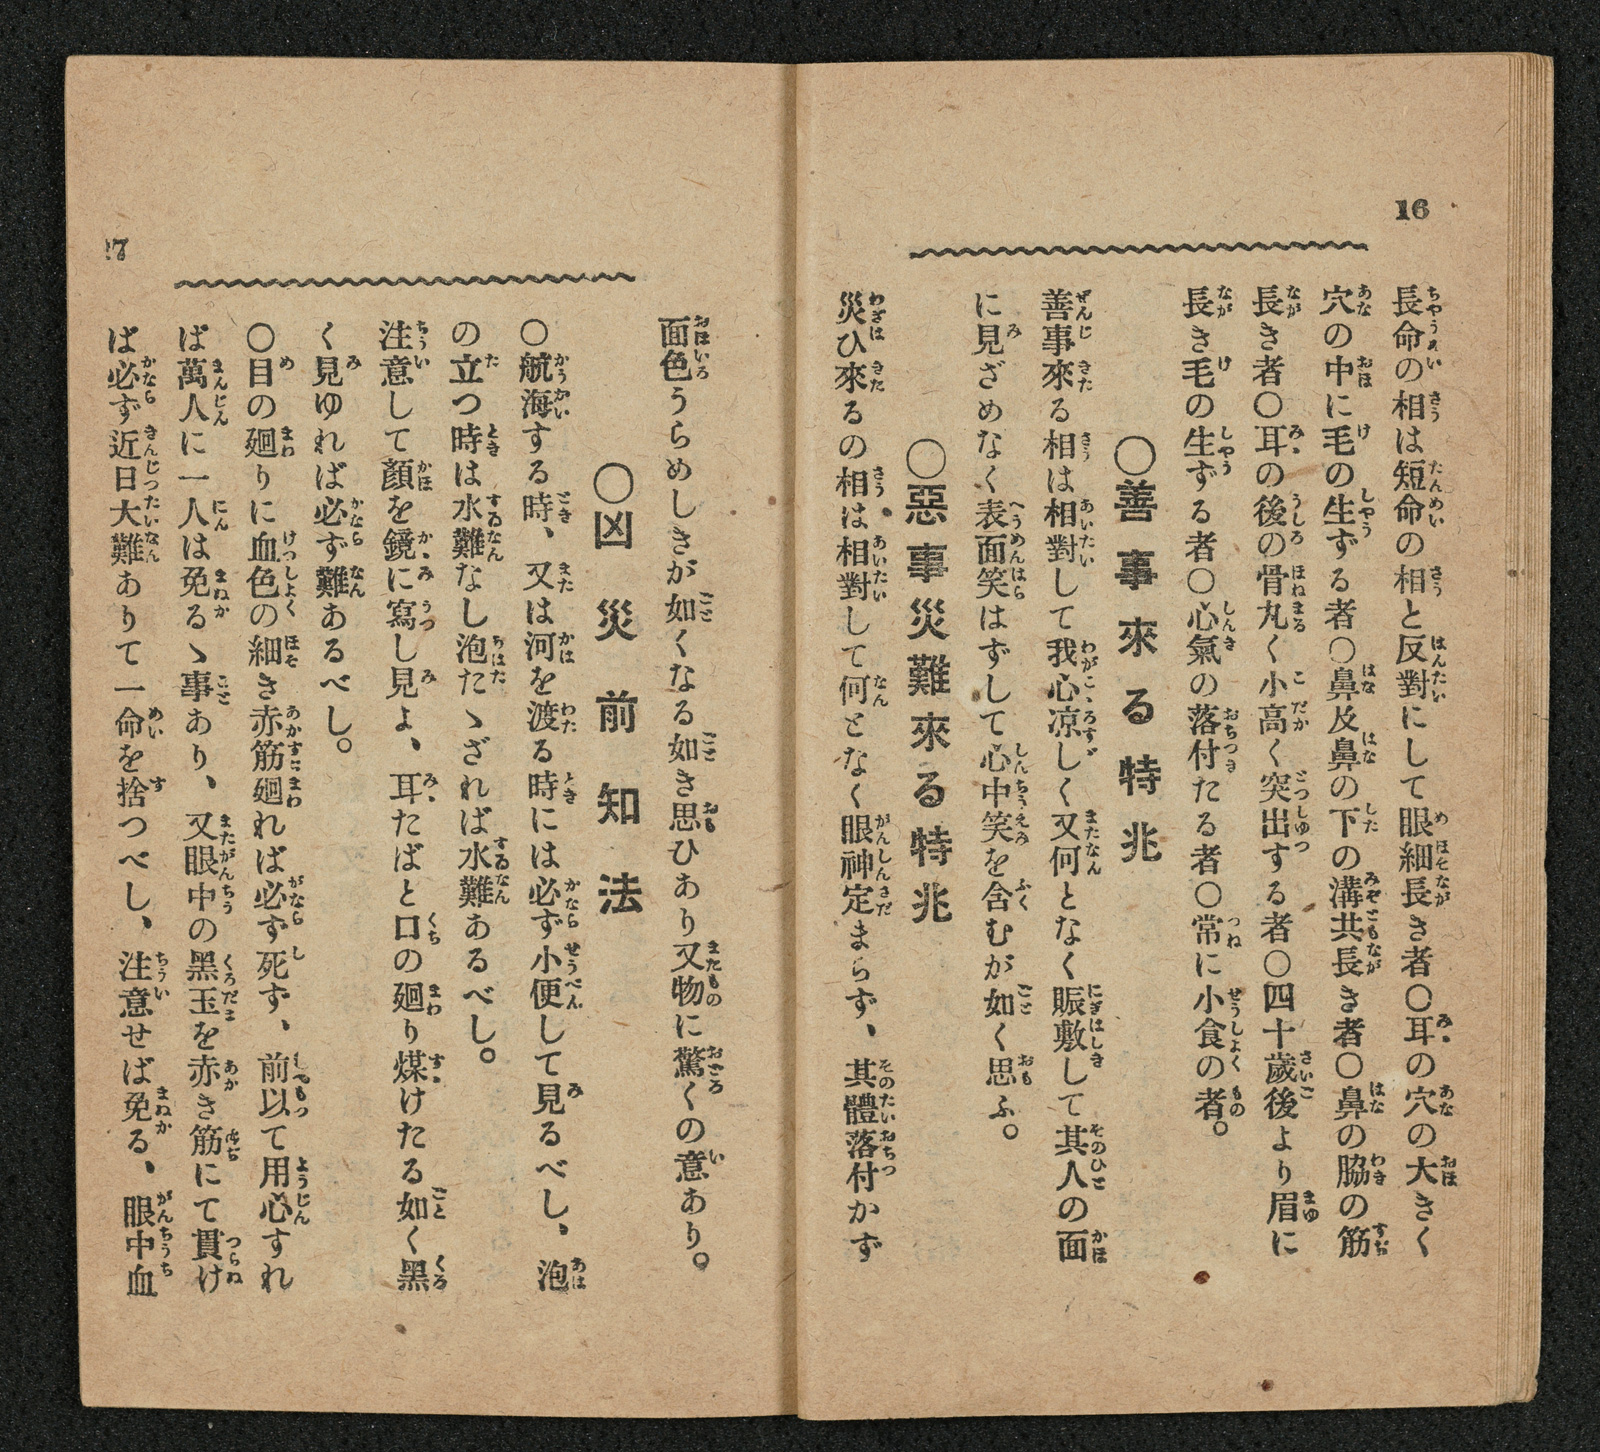 16
長命の相は短命の相と反對にして眼細長き者〇耳の穴の大きく
穴の中に毛の生ずる者〇鼻及鼻の下の溝共長き者〇鼻の脇の筋
長き者〇耳の後の骨丸く小高く突出する者〇四十歲後より眉に
長き毛の生ずる者〇心氣の落付たる者〇常に小食の者。
〇善事來る特兆
善事來る相は相對して我心凉しく又何となく賑敷して其人の面
に見ざめなく表面笑はずして心中笑を含むが如く思ふ。
〇惡事災難來る特兆
災ひ來るの相は相對して何となく眼神定まらず、其體落付かず
17
面色うらめしきが如くなる如き思ひあり又物に驚くの意あり。
〇凶災前知法
〇航海する時、又は河を渡る時には必ず小便して見るべし、泡
の立つ時は水難なし泡たゝざれば水難あるべし。
注意して顏を鏡に寫し見よ、耳たばと口の廻り煤けたる如く黑
く見ゆれば必ず難あるべし。
〇目の廻りに血色の細き赤筋廻れば必ず死ず、前以て用心すれ
ば萬人に一人は免るゝ事あり、又眼中の黑玉を赤き筋にて貫け
ば必ず近日大難ありて一命を捨つべし、注意せば免る、眼中血